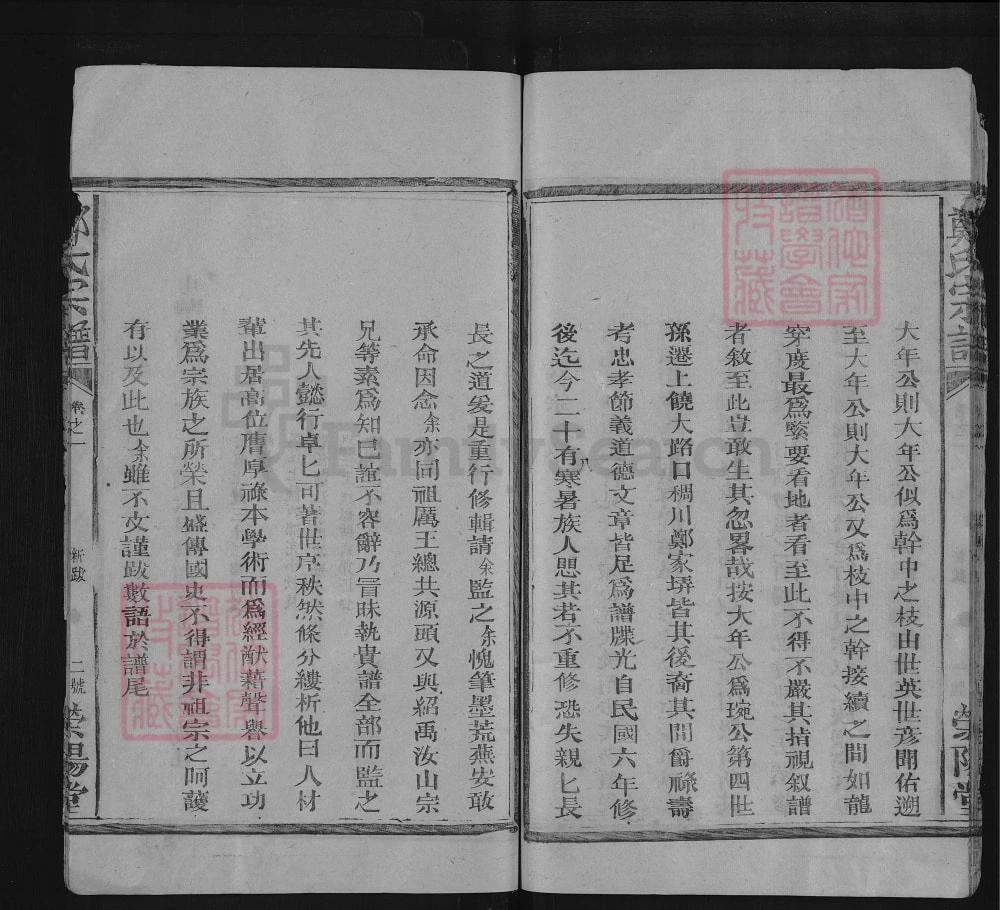 鄭氏宗譜
榮陽堂
大年公則大年公似爲幹中之枝由世英世彦聞佑遡
至大年公則大年公又爲枝中之幹接續之間如龍
穿度最爲緊要看地者看至此不得不嚴其指視叙譜
者敘至此豈敢生其忽畧哉按大年公爲琬公第四世
孫遷上饒大路口稠川鄭家塝皆其後裔其間爵祿壽
考忠孝節義道德文章皆足爲譜牒光自民國六年修
後迄今二十有八寒暑族人思其若不重修恐失親匕長
長之道爰是重行修輯請余監之余愧筆墨荒蕪安敢
承命因念余亦同祖厲王總共源頭又與紹禹汝山宗
兄等素爲知巳誼不容辭乃冒昧執貴譜全部而監之
其先人懿行卓匕可著世序秩然條分縷析他曰人材
輩出居高位膺厚祿本學術而爲經猷藉聲譽以立功
業爲宗族之所榮且盛傳國史不得謂非祖宗之呵護
有以及此也余雖不文謹跋數語於譜尾
鄭氏宗譜
卷之一
新跋
二號
榮陽堂
FamilySearch